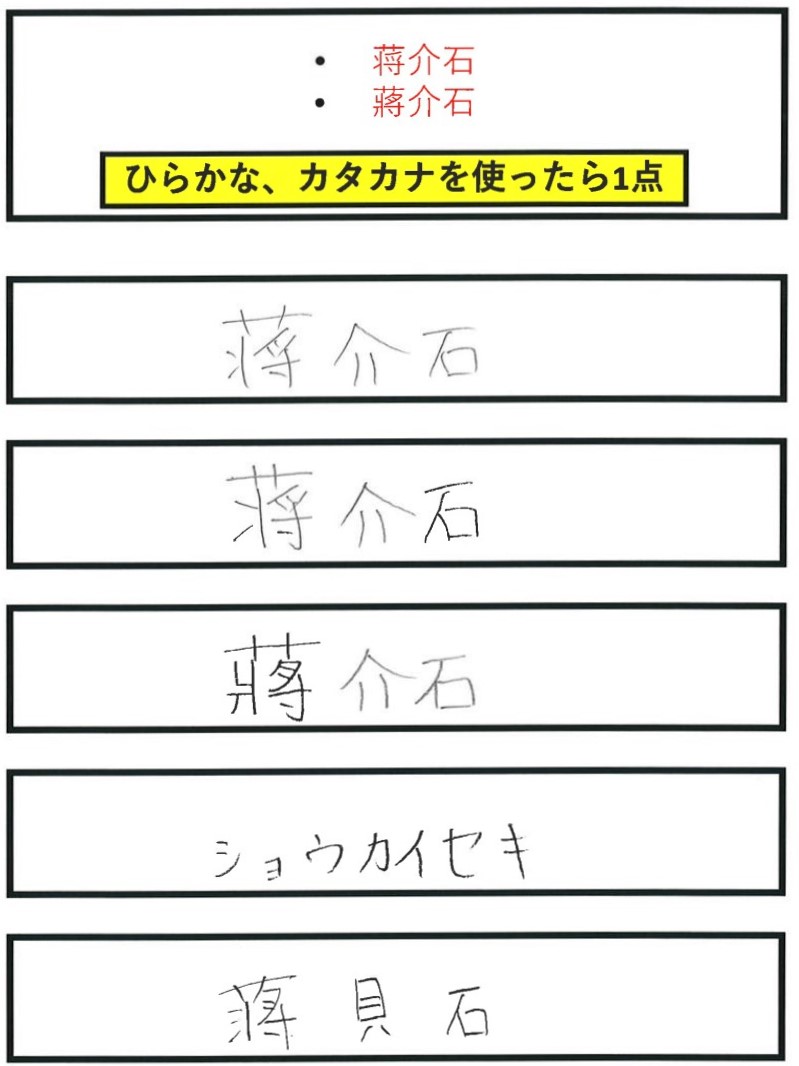 • 蒋介石
• 蔣介石
ひらかな、カタカナを使ったら1点
蒋介石
蒋介石
蔣介石
ショウカイセキ
蒋貝石